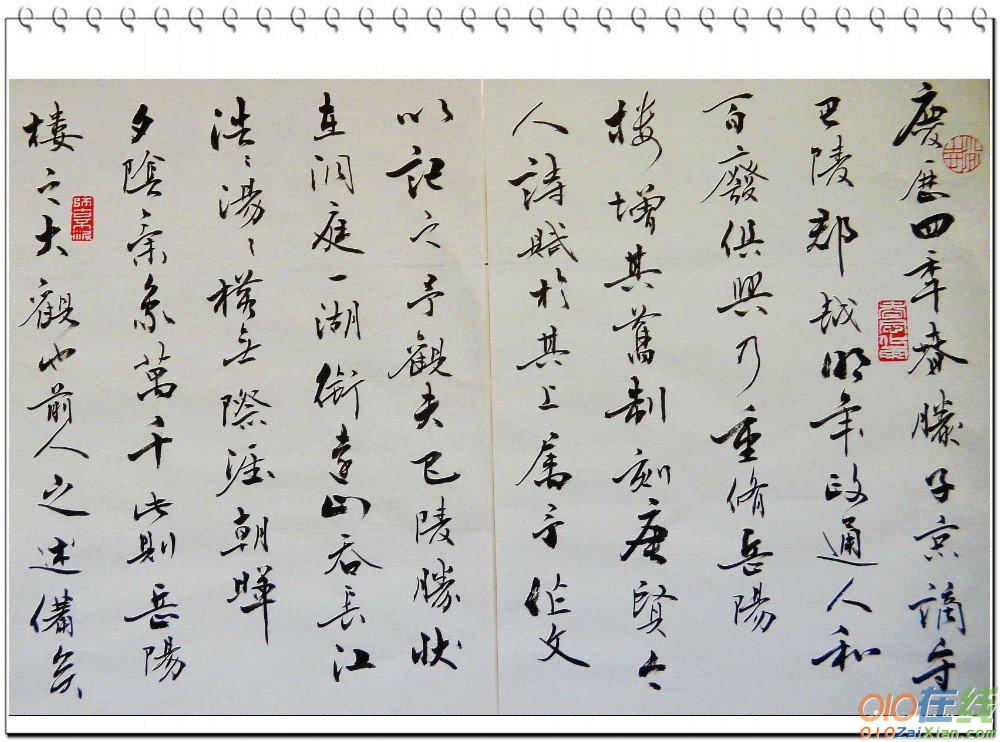 慶歷四年春滕子京謫守
巴陵郡越明年政通人和
百廢俱興乃重脩岳陽
楼增其舊制刻唐賢今
人詩賦於其上属予作文
以記之予觀夫巴陵勝狀
在洞庭一湖銜遠山吞長江
浩〻湯〻橫無際涯朝暉
夕陰氣象萬千此則岳陽
樓之大觀也前人之述備矣
010在线
010ZaiXian.com